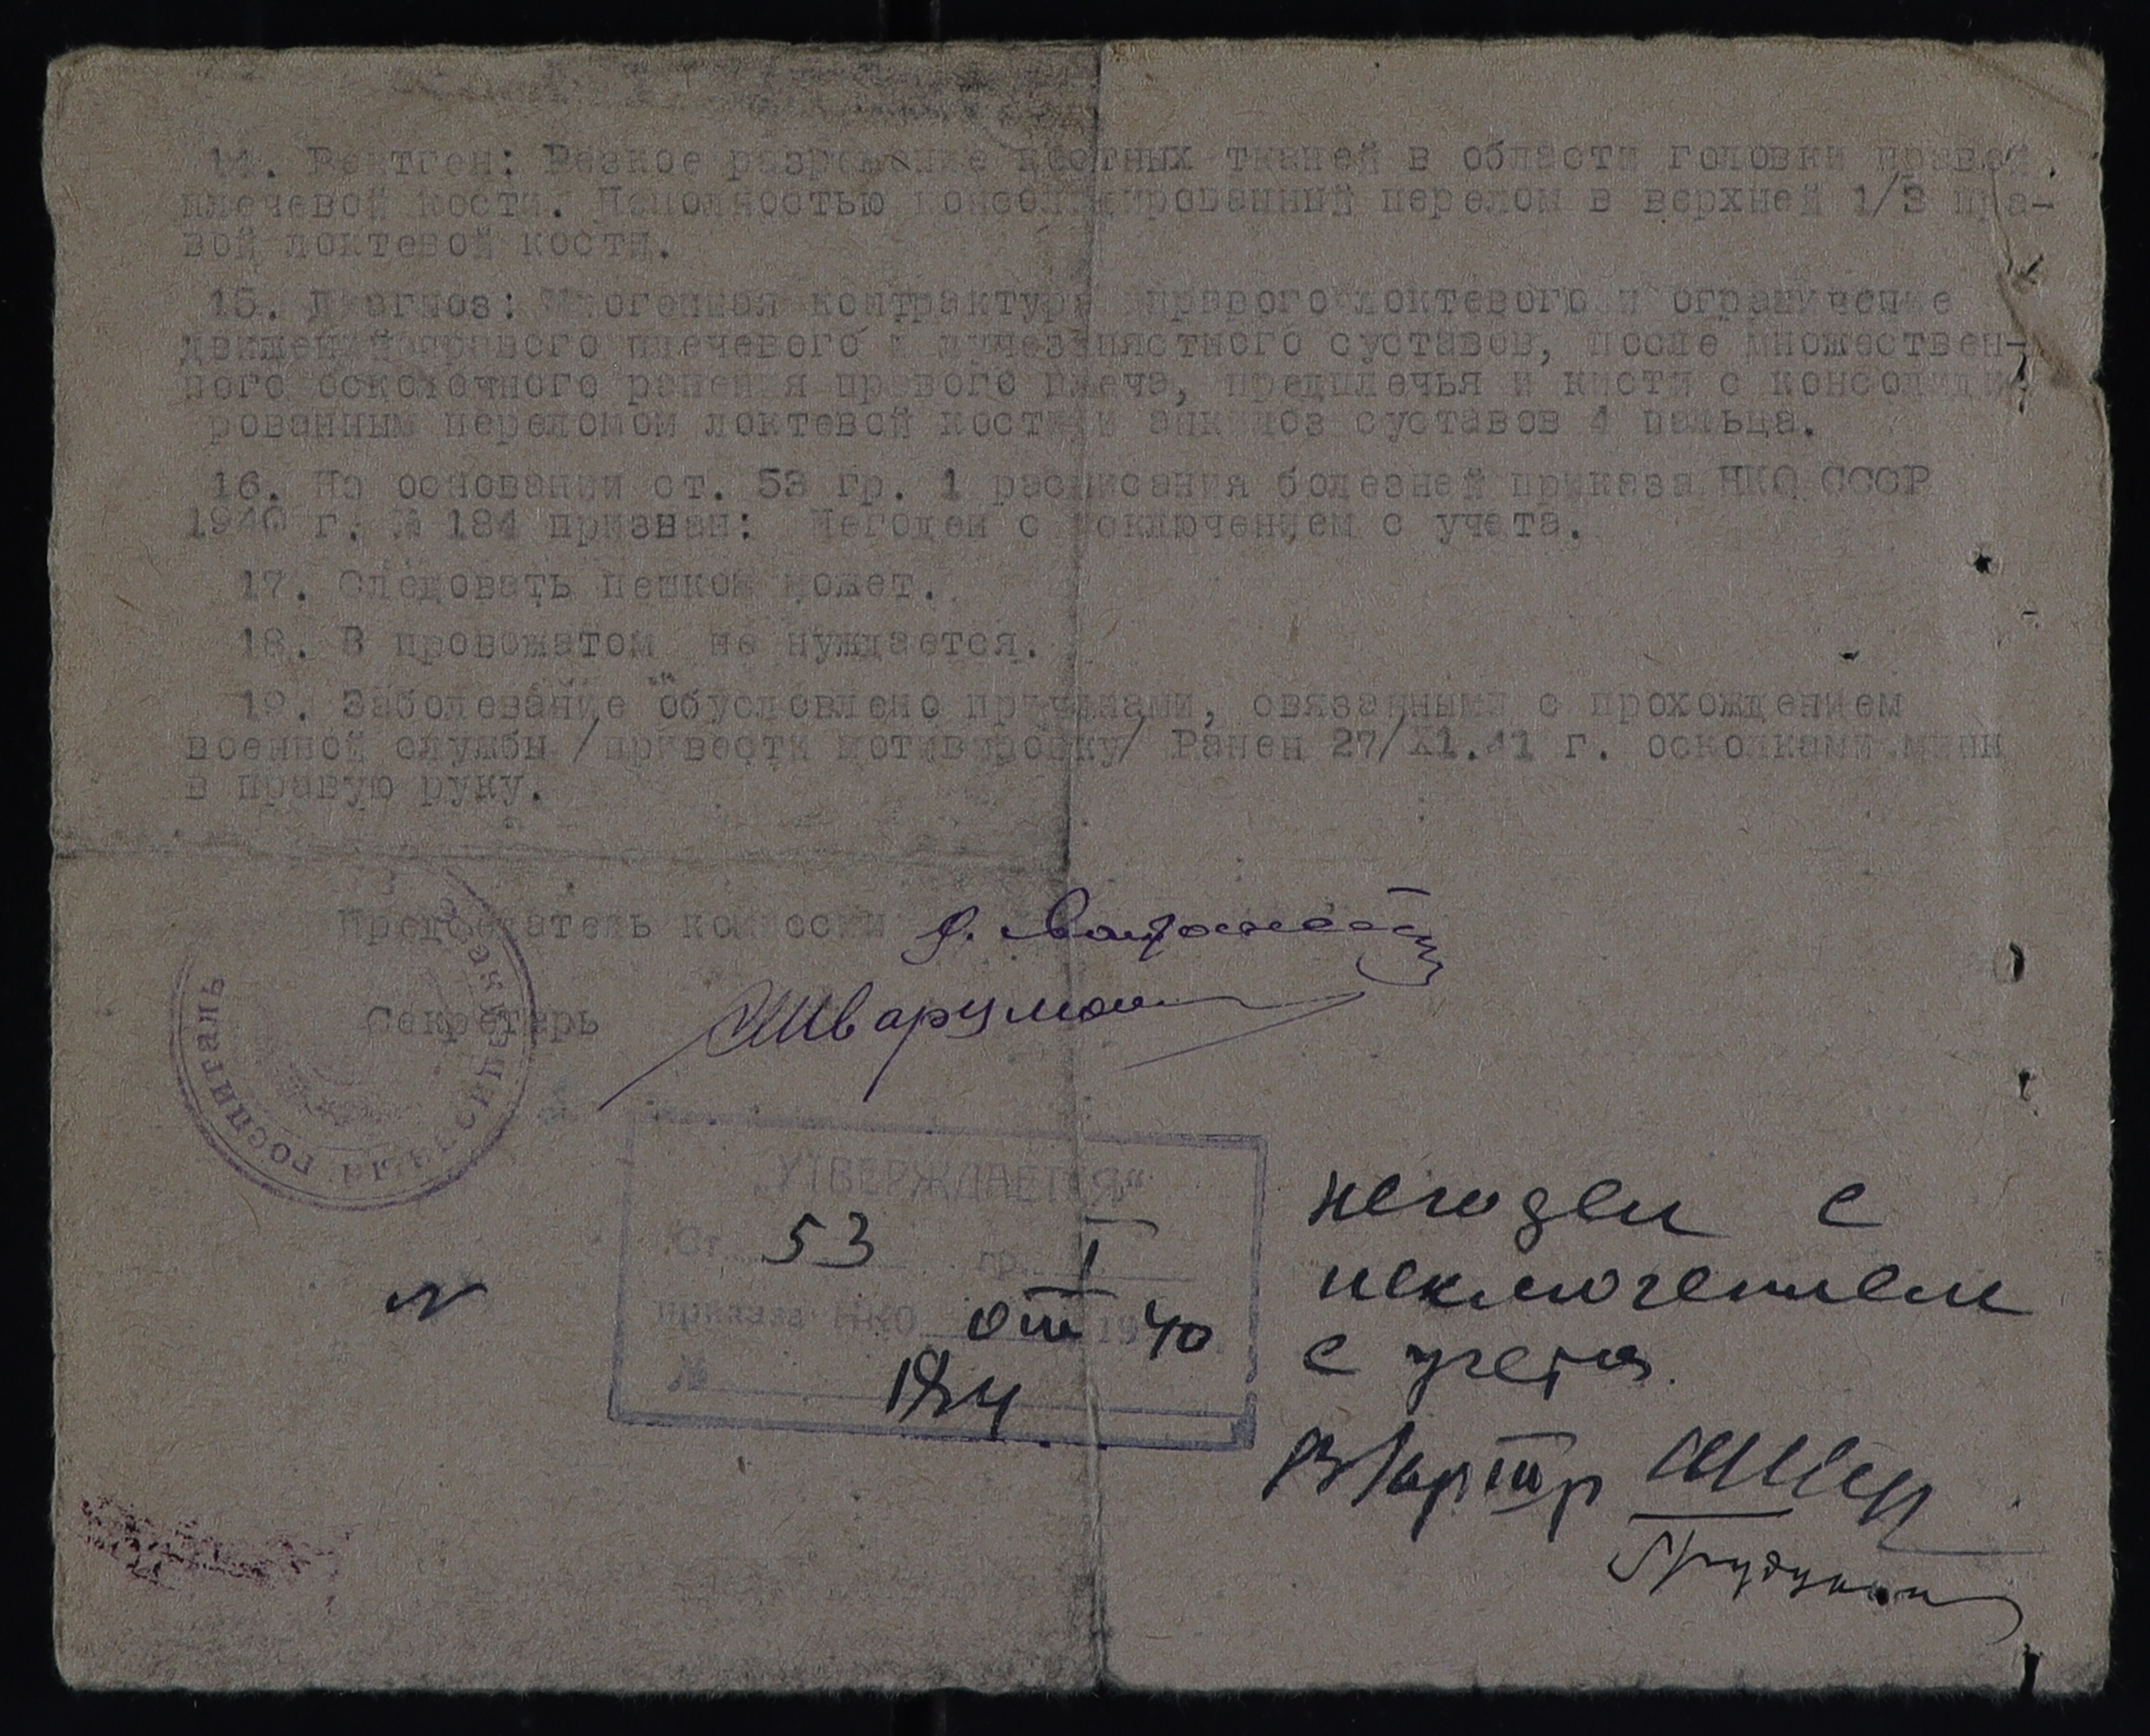 14. Рентген: Резкое разрежение костных тканей в области головки правой
плечевой кости. Неполностью консолидированный перелом в верхней 1/3 пра-
вой локтевой кости.
15. Диагноз: Миогенная контрактура правого локтевого и ограничение
движений правого плечевого и лучезапястного суставов, после множествен-
ного осколочного ранения правого плеча, предплечья и кисти с консолиди-
рованным переломом локтевой кости и анкилоз суставов 4 пальца.
16. На основании ст. 53 гр. 1 расписания болезней приказа НКО СССР
1940 г. № 184 признан: Негоден с исключением с учета.
17. Следовать пешком может.
18. В провожатом не нуждается.
19. Заболевание обусловлено причинами, связанными с прохождением
военной службы /привести мотивировку/ Ранен 27/X1.41 г. осколками мины
в правую руку.
Председатель комиссии
Секретарь Шварцман
госпиталь
„УТВЕРЖДАЕТСЯ"
Ст. 53 гр. I
приказа НКО от 1940
№ 184
негоден с
исключением
с учета.